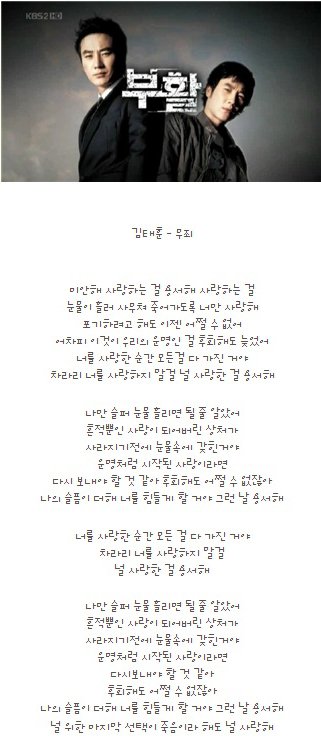 KBS2 HD
부활
김태훈 - 무죄
미안해 사랑하는 걸 용서해 사랑하는 걸
눈물이 흘러 사무쳐 죽어가도록 너만 사랑해
포기하려고 해도 이젠 어쩔 수 없어
어차피 이것이 우리의 운명인 걸 후회해도 늦었어
너를 사랑한 순간 모든걸 다 가진 거야
차라리 너를 사랑하지 말걸 널 사랑한 걸 용서해
나만 슬퍼 눈물 흘리면 될 줄 알았어
흔적뿐인 사랑이 되어버린 상처가
사라지기전에 눈물속에 갇힌거야
운명처럼 시작된 사랑이라면
다시 보내야 할 것 같아 후회해도 어쩔 수 없잖아
나의 슬픔이 더해 너를 힘들게 할 거야 그런 날 용서해
너를 사랑한 순간 모든 걸 다 가진 거야
차라리 너를 사랑하지 말걸
널 사랑한 걸 용서해
나만 슬퍼 눈물 흘리면 될 줄 알았어
흔적뿐인 사랑이 되어버린 상처가
사라지기전에 눈물속에 갇힌거야
운명처럼 시작된 사랑이라면
다시보내야 할 것 같아
후회해도 어쩔 수 없잖아
나의 슬픔이 더해 너를 힘들게 할 거야 그런 날 용서해
널 위한 마지막 선택이 죽음이라 해도 널 사랑해